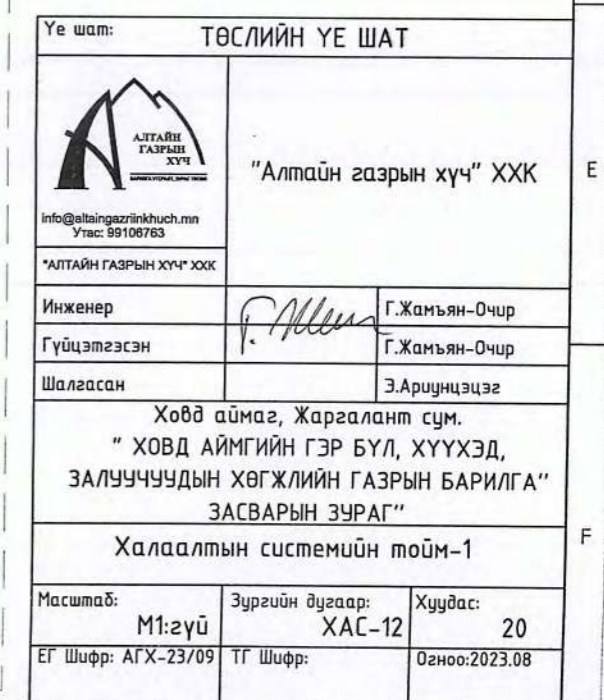 Үе шат:
ТӨСЛИЙН ҮЕ ШАТ
АЛТАЙН
ГАЗРЫН
ХҮЧ
info@altaingazriinkhuch.mn
Утас: 99106763
"АЛТАЙН ГАЗРЫН ХҮЧ" ХХК
"Алтайн газрын хүч" ХХК
E
Инженер
Г.Жамъян-Очир
Гүйцэтгэсэн
Г.Жамъян-Очир
Шалгасан
Э.Ариунцэцэг
Ховд аймаг, Жаргалант сум.
" ХОВД АЙМГИЙН ГЭР БҮЛ, ХҮҮХЭД,
ЗАЛУУЧУУДЫН ХӨГЖЛИЙН ГАЗРЫН БАРИЛГА"
ЗАСВАРЫН ЗУРАГ"
F
Халаалтын системийн тойм-1
Масштаб:
М1:гүй
Зургийн дугаар:
ХАС-12
Хуудас:
20
ЕГ Шифр: АГХ-23/09
ТГ Шифр:
Огноо:2023.08